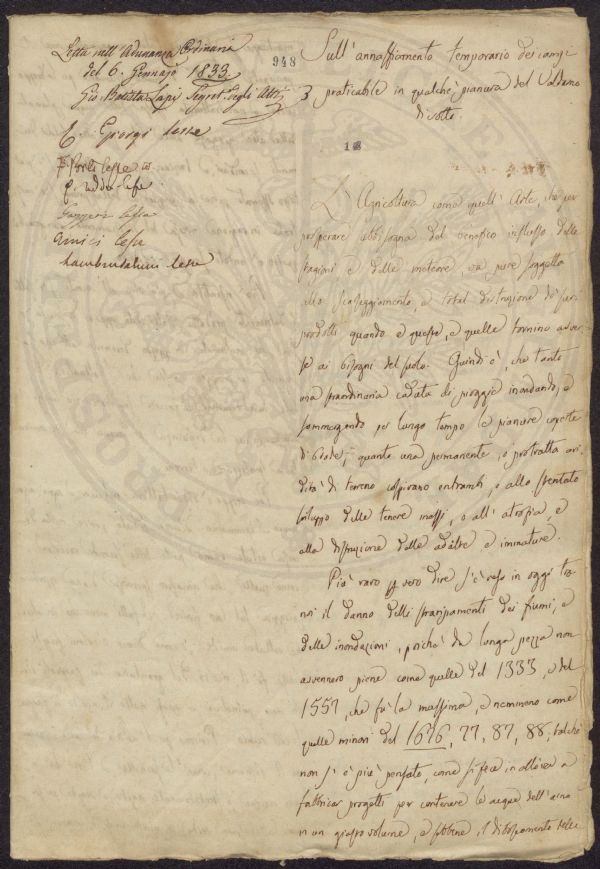 Letta nell'Adunanza Ordinaria
del 6. Gennajo 1833.
Gio Batista Lapi Segret. degli Atti
C. Giorgi lesse
lesse
Lambruschini lesse
948
Sull'annaffiamento temporario dei campi
3 praticabile in qualche pianura del Valdarno
di sotto
18
L'Agricoltura come quell'Arte, che per
prosperare abbisogna del benefico influsso delle
stagioni e delle meteore va pure soggetta
allo scoraggiamento, e total distruzione de' suoi
prodotti quando e queste, e quelle tornino avver
se ai bisogni del suolo. Quindi è, che tanto
una straordinaria caduta di pioggie inondando, e
sommergendo per lungo tempo le pianure coperte
di biade, quanto una permanente, o protratta ari
dità di terreno cospirano entrambi, o allo stentato
sviluppo delle tenere messi, o all'atrofia, e
alla distruzione delle adulte e immature.
Più raro per vero dire s'è reso in oggi tra
noi il danno delli straripamenti dei fiumi, e
delle inondazioni, poichè da lunga pezza non
avvennero piene come quelle del 1333, e del
1557, che fù la massima, e nemmeno come
quelle minori del 1676, 77, 87, 88, talchè
non si è più pensato, come si fece in allora a
fabbricar progetti per contenere le acque dell'arno
in un grosso volume, e sebbene il